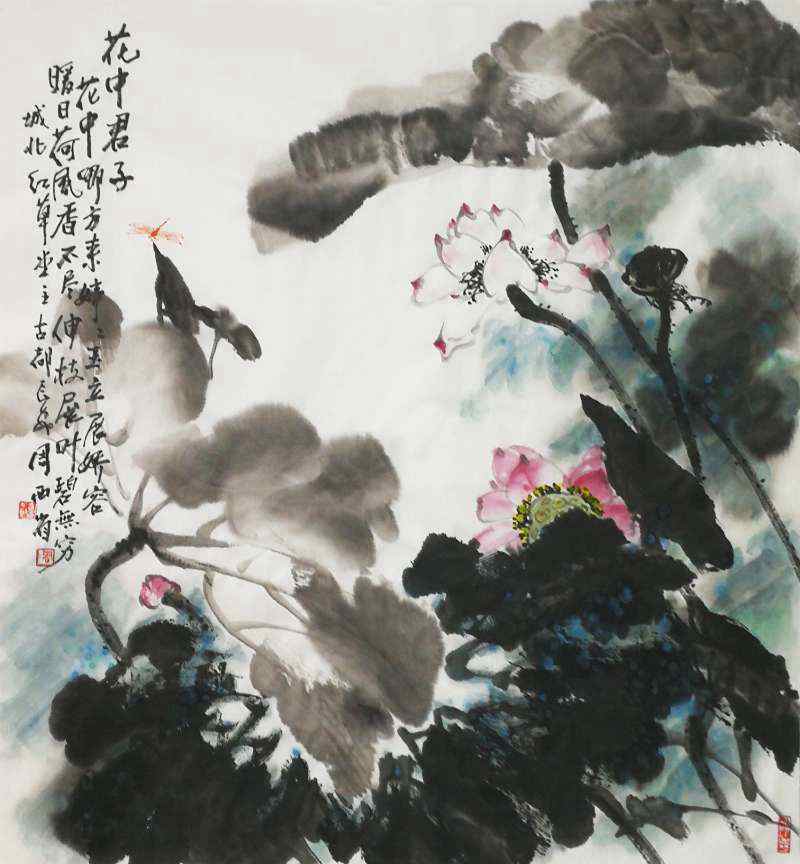 花中君子
花中哪方来婷〻玉立展娇容
暖日荷风香不尽伸枝展叶碧無穷
城北红草堂主古都长安周西